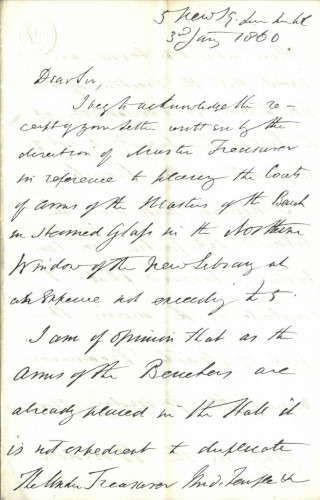 5 New Sq. Linc Inn
3rd Jany 1860
Dear Sir,
I beg to acknowledge the re-
ceipt of your letter written by the
direction of Master Treasurer
in reference to placing the Coats
of Arms of the Masters of the Bench
in Stained Glass in the Northern
Window of the New Library at
an Expense not exceeding £5.
I am of opinion that as the
Arms of the Benchers are
already placed in the Hall it
is not expedient to duplicate
The Under Treasurer Mid. Temple